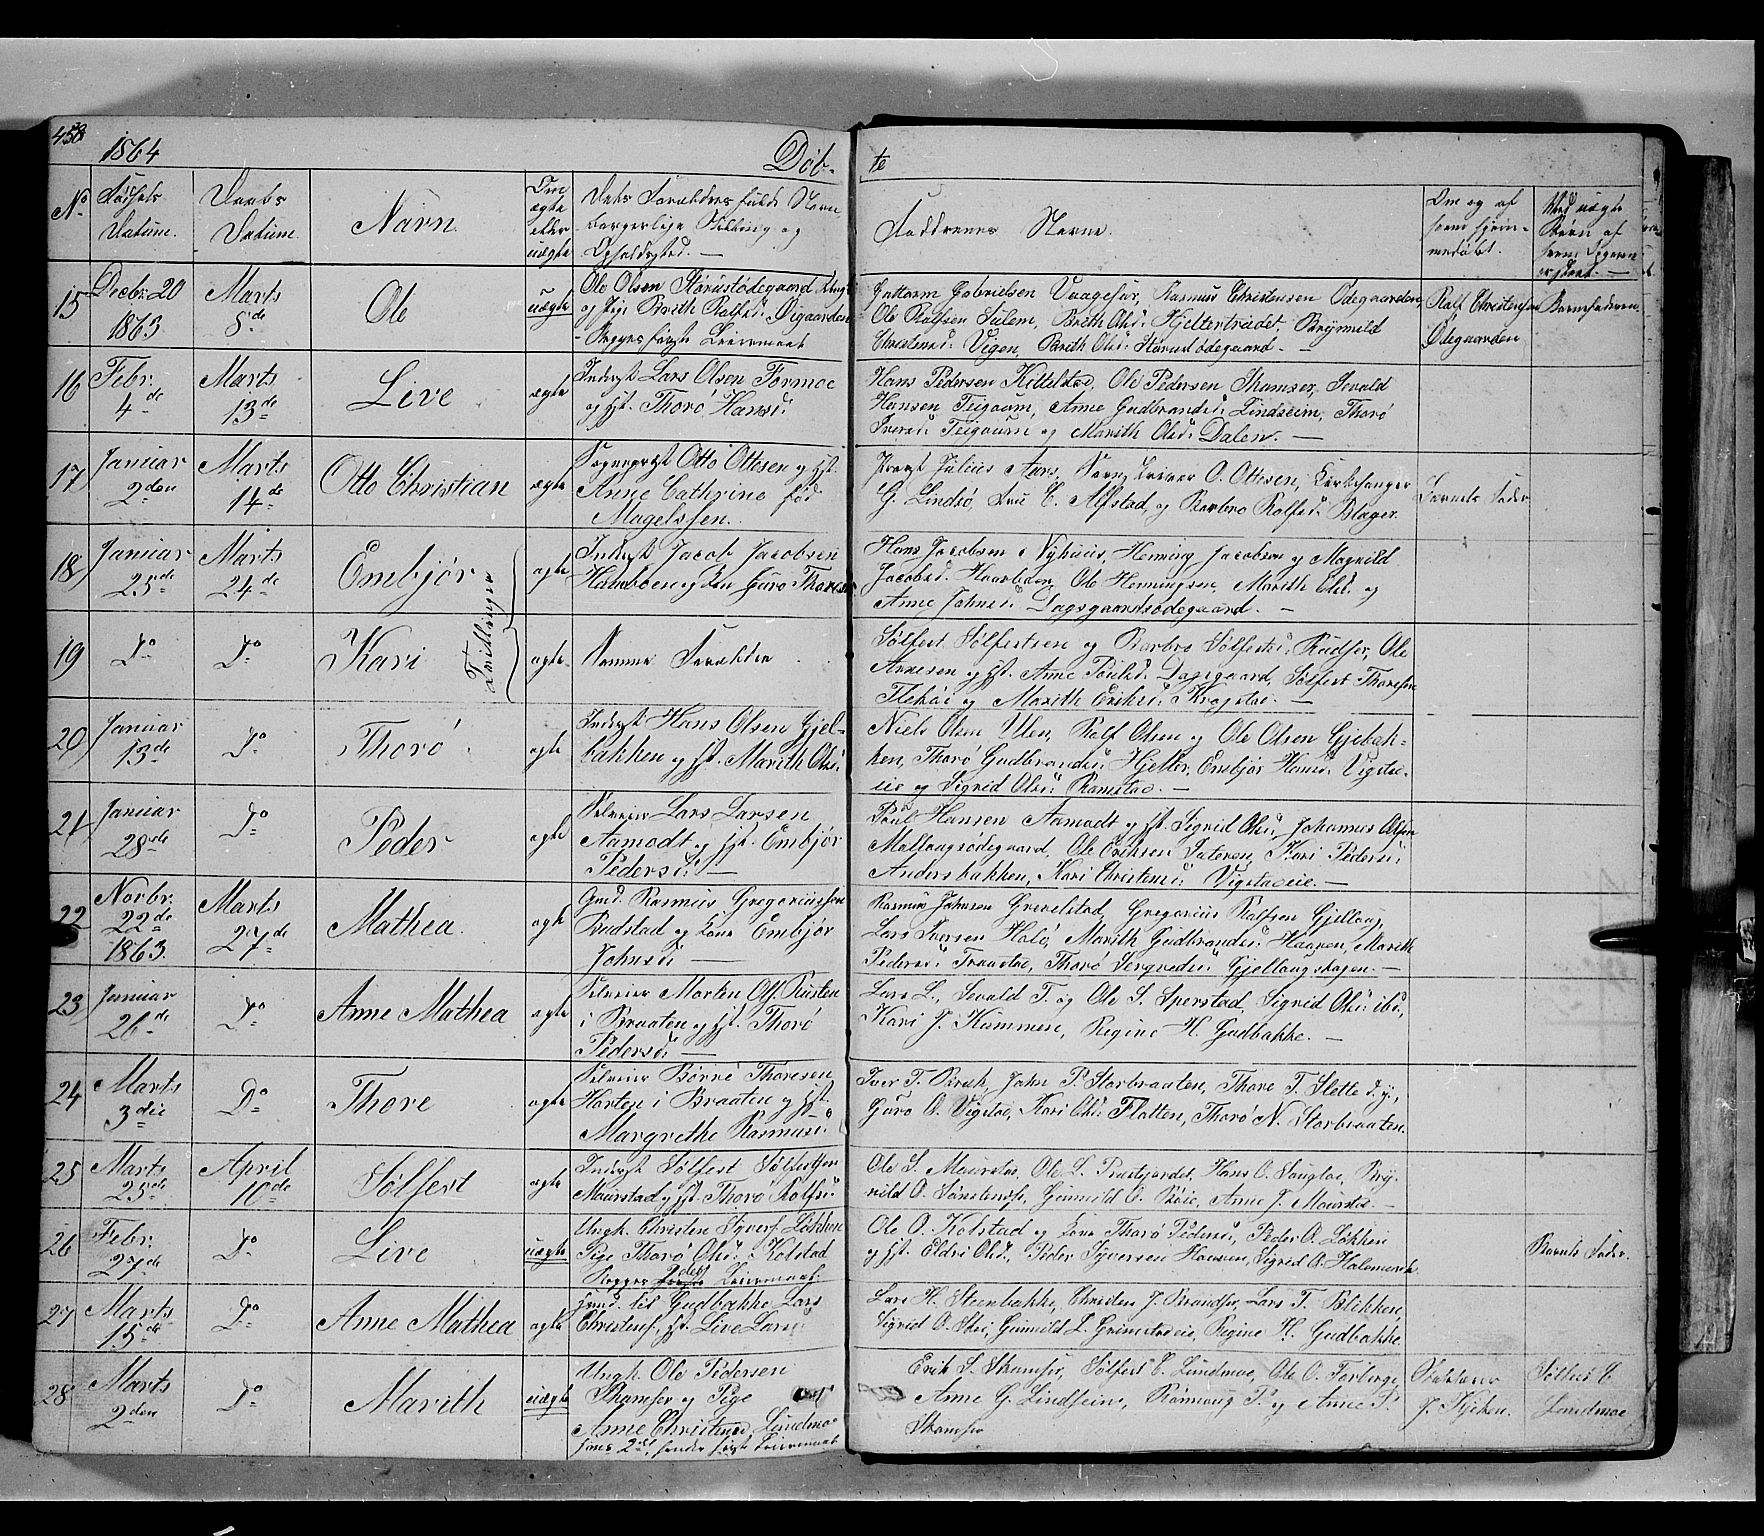 458
1864
Døb-
te
No
Fødsels
Datum.
Daabs
Datum
Navn
Om
ægte
eller
uægte
Dets Forældres fulde Navn
borgerlige Stilling og
Opholdssted. —
Faddrenes Navne.
Om og af
hvem hjem-
medøbt.
Ved uægte
Børn af
hvem
15
Decbr 20
1863
Marts
8de
Ole
uægte
Ole Olsen
og Pige Brith Rolfsd: Øigaarden
Begges første Leiermaal
Guttorm Gabrielsen Vaagesar, Rasmus Christensen Ødegaarden,
Ole Rolfsen Sulem, Brith Olsd: Hjeltertrædet, Brynnild
Christensd: Vigen, Brith Olsd:
Rolf Christensen
Ødegaarden
Barnefaderen
16
Febr.
4de
Marts
13de
Live
ægte
Inderst Lars Olsen Formoe
og Hst. Thorø Hansd:
Hans Pedersen Kittelstad, Ole Pedersen Skamser, Sevald
Hansen Teigaum, Anne Gudbrandsd: Lindseim, Thorø
Iversd: Teigaum og Marith Olsd: Dalen. —
17
Januar
2den
Marts
14de
Otto Christian
ægte
Sognepræst Otto Ottesen og Hst.
Anne Cathrine fød
Magelssen.
Provst Julius Aars, Sorenskriver O. Ottesen, Kirkesanger
G. Lindsø, Fru C. Alfstad, og Barbro Rolfsd: Blager.
Barnets Fader
18
Januar
25de
Marts
24de
Embjør
Tvillinger
ægte
Inderst Jacob Jacobsen
og Kone Guro Thoresd:
Hans Jacobsen Nyhuus, Henning Jacobsen og Magnild
Jacobsd: Haarleden, Ole Henningsen, Marith Olsd: og
Anne Johnsd: Dagsgaardsødegaard. —
19
Do
Do
Kari
ægte
Samme Forældre
Sølfest Sølfestsen og Barbro Sølfestsd: Rudser, Ole
Arnesen og Hst. Anne Poulsd: Dagsgaard, Sølfest Thoresen
og Marith Eriksd: —
20
Januar
13de
Do
Thorø
ægte
Inderst Hans Olsen Gjel-
bakken og Hst. Marith Olsd:
Niels Olsen Ulen, Rolf Olsen og Ole Olsen Gjebak-
ken, Thorø Gudbrandsd: Hjelter, Embjør Hansd: Vigsta-
eie og Sigrid Olsd: Ramstad. —
21
Januar
28de
Do
Peder
ægte
Selveier Lars Larsen
Aamodt og Hst. Embjør
Pedersd: —
Poul Hansen Aamodt og Hst. Sigrid Olsd:, Johannes Olsen
Mallangsødegaard, Ole Eriksen Sateren, Kari Pedersd:
Andersbakken, Kari Christensd: Vigstaeie. —
22
Novbr.
22de
1863.
Marts
27de
Mathea
ægte
Gmd. Rasmus Gregoriussen
Rudstad og Kone Embjør
Johnsd: —
Rasmus Johnsen Grevelstad, Gregorius Rolfsen Gjellaug,
Lars Iversen Holø, Marith Gudbrandsd: Haagen, Marith
Pedersd: Traastad, Thorø Sergvedsd: Gjellaugshagen. —
23
Januar
26de
Do
Anne Mathea
ægte
Selveier Morten Ols. Rusten
i Braaten og Hst. Thorø
Pedersd: —
Lars L., Sevald T. og Ole S. Sperstad, Sigrid Olsd: ibd.,
Kari J. Kummen, Regine H. Gudbakke. —
24
Marts
3die
Do
Thore
ægte
Selveier Børne Thoresen
Horten i Braaten og Hst.
Margrethe Rasmusd:
Iver T. Birch, John P. Storbraaten, Thore T. Slette d.y.,
Guro O. Vigstad, Kari Olsd: Flatten, Thorø N. Storbraaten.
25
Marts
25de
April
10de
Sølfest
ægte
Inderst Sølfest Sølfestsen
Maurstad og Hst. Thorø Rolfsd:
Ole S. Maurstad, Ole L. Præstjordet, Hans O. Haugloe, Bry-
nild O. Gunnild O. Bøie, Anne J. Maurstad. —
26
Febr.
27de
Do
Live
uægte
Ungk. Christen Syvers. Løkken
Pige Thorø Olsd: Kolstad
Begges 2det Leiermaal.
Ole O. Kolstad og Kone Thorø Pedersd:, Peder O. Løkken
og Hst. Eldri Olsd:, Peder Syversen Haansen, Sigrid O. Holemark
Barnets Fader
27
Marts
15de
Do
Anne Mathea
ægte
Gmd. til Gudbakke Lars
Christens., Hst. Live Larsd:
Lars H. Steenbakke, Christen J. Brandser, Lars T. Blikken,
Sigrid O. Skei, Gunnild L. Grimstadeie, Regine H. Gudbakke.
28
Marts
2den
Do
Marith
uægte
Ungk. Ole Pedersen
Skamser og Pige
Anne Christensd: Lindmoe
hans 2det, hendes første Leiermaal
Erik S. Skamser, Sølfest C. Lindmoe, Ole O.
Anne G. Lindseim, Rønnaug P. og Anne P.
Skamser
J. Kjeken.
Sølfest C.
Lindmoe